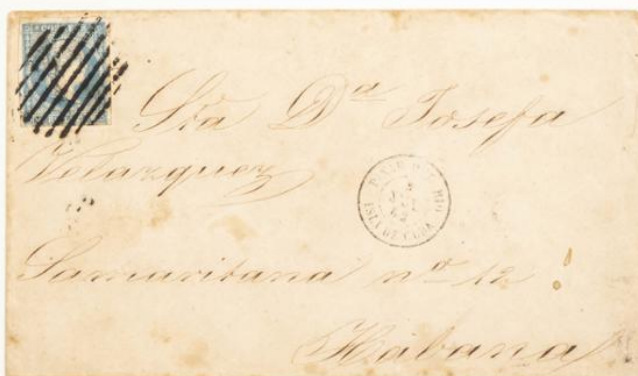 CORREOS
Sta Da Josefa
Velazquez
PINAR DEL RIO
ISLA DE CUBA
Samaritana no 12
Habana